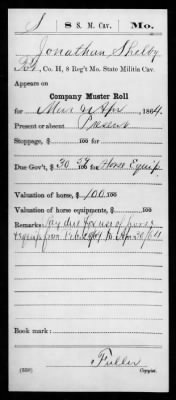 S | 8 S. M. Cav. | Mo.
Jonathan Shelby
Pvt, Co. H, 8 Reg't Mo. State Militia Cav.
Company Muster Roll
for Mar & Apr, 1864.
Present or absent Present
Stoppage, $ 100 for
Due Gov't, $ 30 57/100 for Horse Equip
Valuation of horse, $ 100 100
Valuation of horse equipments, $ 100
Remarks: Pay due for use of horse
& equip from Feb 29/64 to Apr 30/64
Book mark:
Fuller
(359) Copyist.